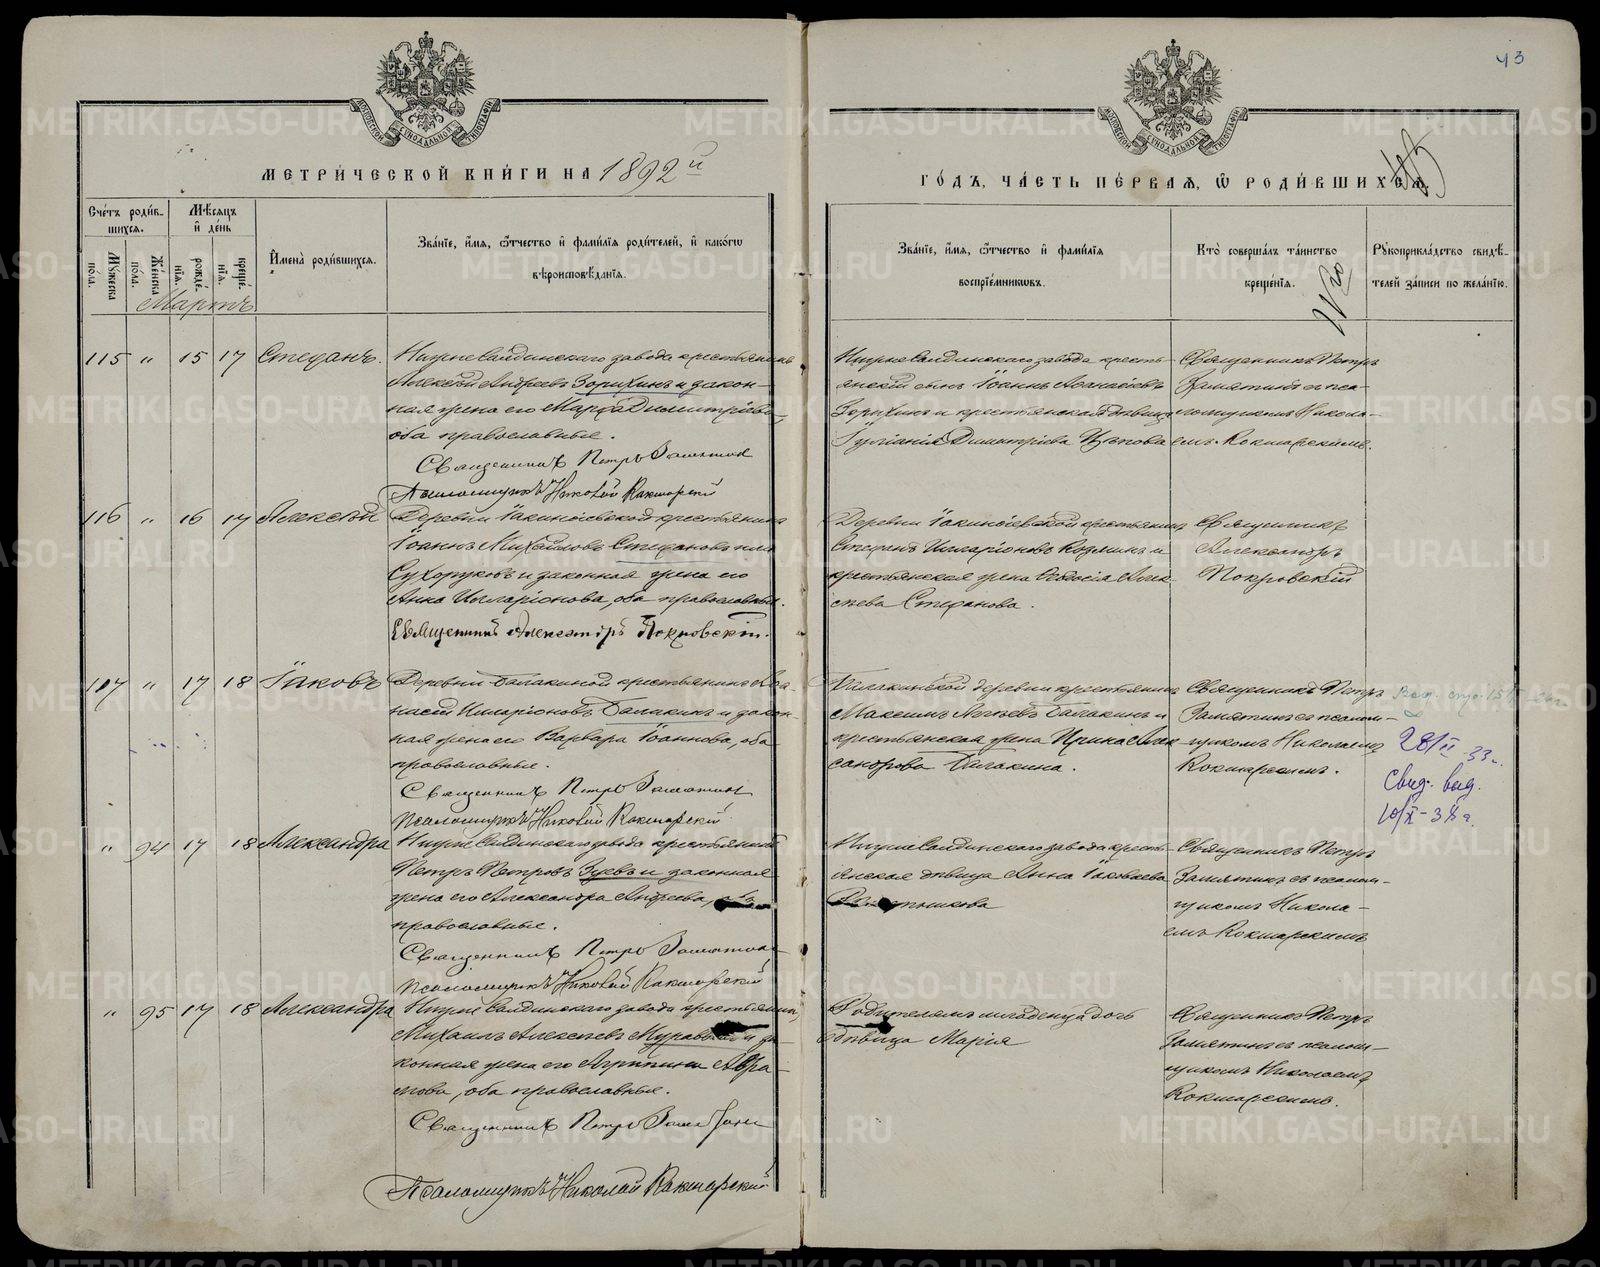 43
МЕТРИ́ЧЕСКОЙ КНИ́ГИ НА 1892 й
ГО́ДЪ, ЧА́СТЬ ПЕ́РВАѦ, Ѿ РОДИ́ВШИХСѦ.
45
Сче́тъ роди́в-
шихсѧ.
Мѣ́сѧцъ
и҆ де́нь
Мꙋ́жеска
по́ла.
Же́нска
по́ла.
рожде́-
нїѧ.
креще́-
нїѧ.
И҆мена̀ роди́вшихсѧ.
Зва́нїе, и҆́мѧ, ѻ҆́тчество и҆ фами́лїѧ роди́телей, и҆ како́гѡ
вѣроисповѣ́данїѧ.
Зва́нїе, и҆́мѧ, ѻ҆́тчество и҆ фами́лїѧ
воспрїе́мникѡвъ.
Кто̀ соверша́лъ та́инство
креще́нїѧ.
Рꙋкоприкла́дство свидѣ́-
телей за́писи по жела́нїю.
Мартъ
115 " 15 17 Стефанъ.
Нижнесалдинскаго завода крестьянинъ
Алексѣй Андреевъ Зорихинъ и закон-
ная жена его Марѳа Димитріева,
оба православные.
Священникъ Петръ Замятинъ
Псаломщикъ Николай Кокшарскій
Нижнесалдинскаго завода кресть-
янскій сынъ Іоаннъ Аѳанасіевъ
Зорихинъ и крестьянская дѣвица
Іуліанія Димитріева
Священникъ Петръ
Замятинъ съ пса-
ломщикомъ Никола-
емъ Кокшарскимъ.
116 " 16 17 Алексѣй
Деревни Іакинѳіевской крестьянинъ
Іоаннъ Михайловъ Стефановъ или
Сухоруковъ и законная жена его
Анна Иларіонова, оба православные.
Священникъ Александръ Покровскій.
Деревни Іакинѳіевской крестьянинъ
Стефанъ Иларіоновъ и
крестьянская жена Ѳеодосія Алек-
сѣева Стефанова.
Священникъ
Александръ
Покровскій
117 " 17 18 Іаковъ
Деревни Балакиной крестьянинъ Аѳа-
насій Иларіоновъ Балакинъ и закон-
ная жена его Варвара Іоаннова, оба
православные.
Священникъ Петръ Замятинъ
Псаломщикъ Николай Кокшарскій
Балакинской деревни крестьянинъ
Максимъ Балакинъ и
крестьянская жена Ирина Алек-
сандрова Балакина.
Священникъ Петръ
Замятинъ съ псалом-
щикомъ Николаемъ
Кокшарскимъ.
28/II 33 г.
Свид. выд.
10/X-38 г.
" 94 17 18 Александра
Нижнесалдинскаго завода крестьянинъ
Петръ Петровъ Зуевъ и законная
жена его Александра Андреева, оба
православные.
Священникъ Петръ Замятинъ
Псаломщикъ Николай Кокшарскій
Нижнесалдинскаго завода кресть-
янская дѣвица Анна Іаковлева
Священникъ Петръ
Замятинъ съ псалом-
щикомъ Никола-
емъ Кокшарскимъ
" 95 17 18 Александра
Нижнесалдинскаго завода крестьянинъ
Михаилъ Алексѣевъ и за-
конная жена его Агриппина Авра-
мова, оба православные.
Священникъ Петръ Замятинъ
Псаломщикъ Николай Кокшарскій
Родителямъ младенца дочь
дѣвица Марія
Священникъ Петръ
Замятинъ съ псалом-
щикомъ Николаемъ
Кокшарскимъ.
METRIKI.GASO-URAL.RU